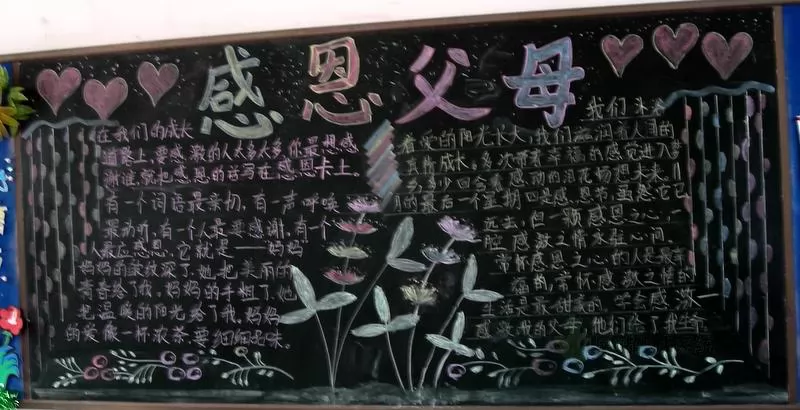 感恩父母
在我们的成长
道路上,要感激的人太多太多,你最想感
谢谁,就把感恩的话写在感恩卡上。
有一个词语最亲切,有一声呼唤
最动听,有一个人最要感谢,有一个
人最应感恩,它就是——妈妈
妈妈的皱纹深了,她把美丽的
青春给了我,妈妈的手粗了,她
把温暖的阳光给了我,妈妈
的爱像一杯浓茶,要细细品味。
我们沐浴
着爱的阳光长大,我们滋润着人间的
真情成长,多次带着幸福的感觉进入梦
乡,多少回含着感动的泪花畅想未来。
月的最后一个星期四是感恩节,虽然它已
远去,但一颗感恩之心,一
腔感激之情永驻心间
常怀感恩之心的人是最幸
福的,常怀感激之情的
生活是最甜美的。学会感激
感激我的父母,他们给了我生